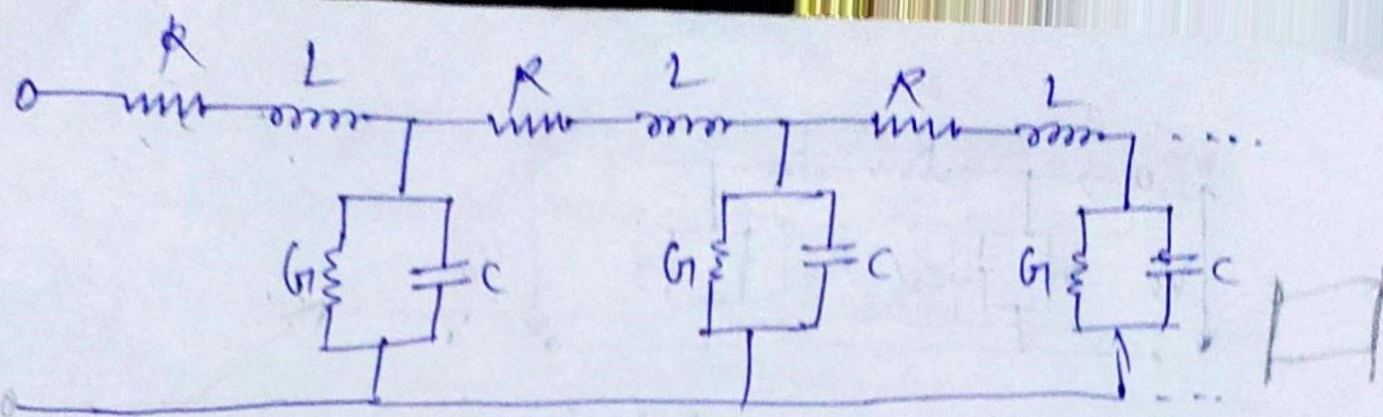 R L R L R L ....
G C G C G C
....